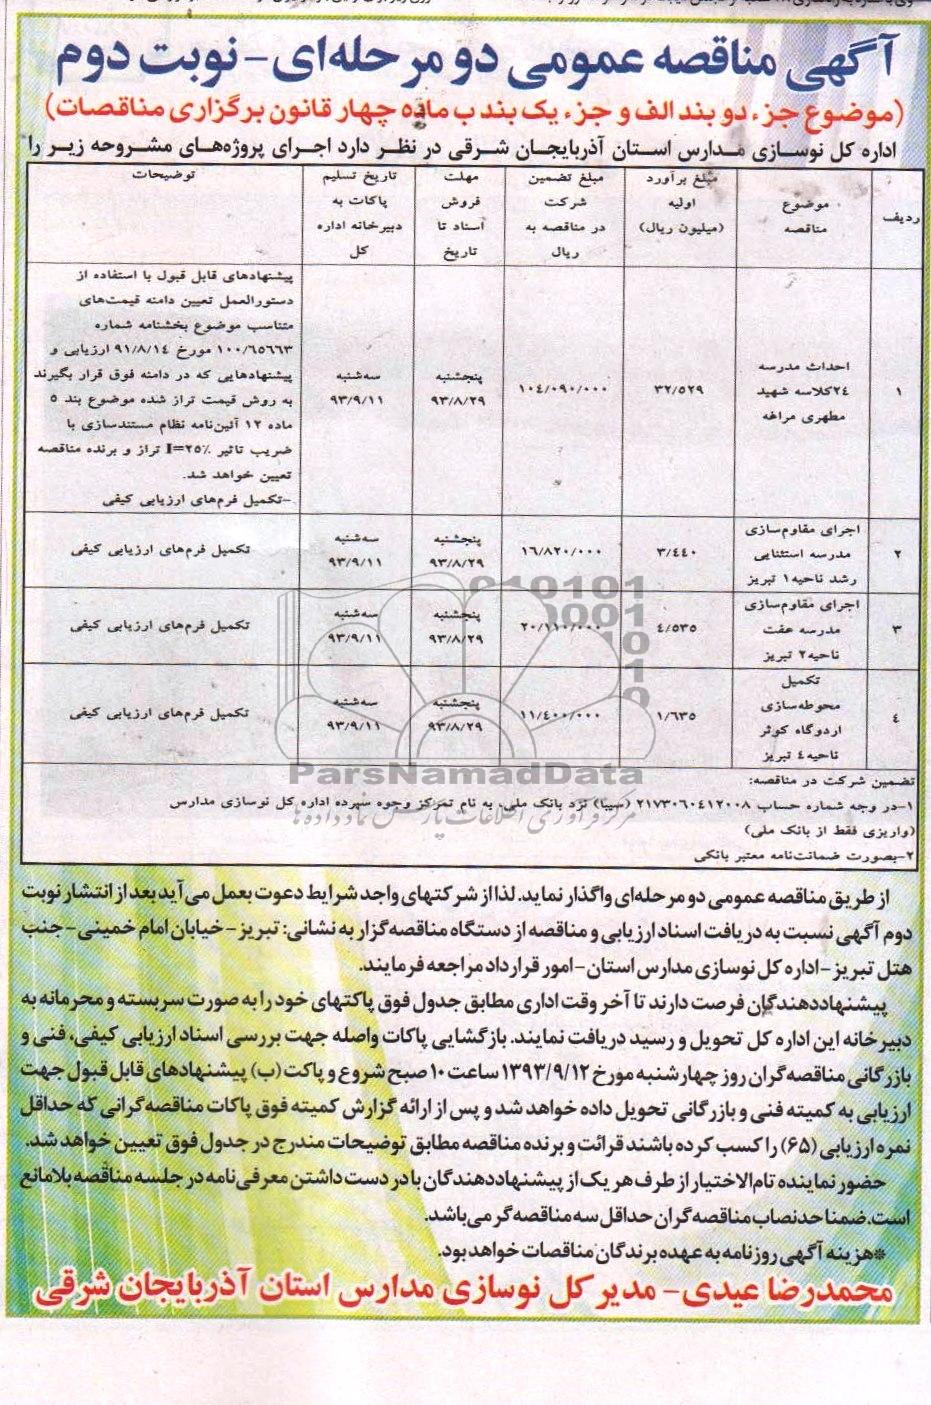 آگهی مناقصه عمومی دو مرحله‌ای - نوبت دوم
(موضوع جزء دو بند الف و جزء یک بند ب ماده چهار قانون برگزاری مناقصات)
اداره کل نوسازی مدارس استان آذربایجان شرقی در نظر دارد اجرای پروژه‌های مشروحه زیر را
ردیف
موضوع
مناقصه
مبلغ برآورد
اولیه
(میلیون ریال)
مبلغ تضمین
شرکت
در مناقصه به
ریال
مهلت
فروش
اسناد تا
تاریخ
تاریخ تسلیم
پاکات به
دبیرخانه اداره
کل
توضیحات
۱
احداث مدرسه
۲۴کلاسه شهید
مطهری مراغه
۳۲/۵۲۹
۱۰۴/۰۹۰/۰۰۰
پنجشنبه
۹۳/۸/۲۹
سه‌شنبه
۹۳/۹/۱۱
پیشنهادهای قابل قبول با استفاده از
دستورالعمل تعیین دامنه قیمت‌های
متناسب موضوع بخشنامه شماره
۱۰۰/۶۵۶۶۳ مورخ ۹۱/۸/۱۴ ارزیابی و
پیشنهادهایی که در دامنه فوق قرار بگیرند
به روش قیمت تراز شده موضوع بند ۵
ماده ۱۲ آئین‌نامه نظام مستندسازی با
ضریب تاثیر I=۲۵٪ تراز و برنده مناقصه
تعیین خواهد شد.
-تکمیل فرم‌های ارزیابی کیفی
۲
اجرای مقاوم‌سازی
مدرسه استثنایی
رشد ناحیه۱ تبریز
۳/۴۴۰
۱۶/۸۲۰/۰۰۰
پنجشنبه
۹۳/۸/۲۹
سه‌شنبه
۹۳/۹/۱۱
تکمیل فرم‌های ارزیابی کیفی
۳
اجرای مقاوم‌سازی
مدرسه عفت
ناحیه۲ تبریز
۴/۵۳۵
۲۰/۱۱۰/۰۰۰
پنجشنبه
۹۳/۸/۲۹
سه‌شنبه
۹۳/۹/۱۱
تکمیل فرم‌های ارزیابی کیفی
۴
تکمیل
محوطه‌سازی
اردوگاه کوثر
ناحیه۴ تبریز
۱/۶۳۵
۱۱/۴۰۰/۰۰۰
پنجشنبه
۹۳/۸/۲۹
سه‌شنبه
۹۳/۹/۱۱
تکمیل فرم‌های ارزیابی کیفی
ParsNamadData
مرکز فرآوری اطلاعات پارس نماد داده‌ها
تضمین شرکت در مناقصه:
۱-در وجه شماره حساب ۲۱۷۳۰۶۰۴۱۲۰۰۸ (سیبا) نزد بانک ملی، به نام تمرکز وجوه سپرده اداره کل نوسازی مدارس
(واریزی فقط از بانک ملی)
۲-بصورت ضمانت‌نامه معتبر بانکی
از طریق مناقصه عمومی دو مرحله‌ای واگذار نماید. لذا از شرکتهای واجد شرایط دعوت بعمل می‌آید بعد از انتشار نوبت
دوم آگهی نسبت به دریافت اسناد ارزیابی و مناقصه از دستگاه مناقصه‌گزار به نشانی: تبریز - خیابان امام خمینی - جنب
هتل تبریز - اداره کل نوسازی مدارس استان - امور قرارداد مراجعه فرمایند.
پیشنهاددهندگان فرصت دارند تا آخر وقت اداری مطابق جدول فوق پاکتهای خود را به صورت سربسته و محرمانه به
دبیرخانه این اداره کل تحویل و رسید دریافت نمایند. بازگشایی پاکات واصله جهت بررسی اسناد ارزیابی کیفی، فنی و
بازرگانی مناقصه‌گران روز چهارشنبه مورخ ۱۳۹۳/۹/۱۲ ساعت ۱۰ صبح شروع و پاکت (ب) پیشنهادهای قابل قبول جهت
ارزیابی به کمیته فنی و بازرگانی تحویل داده خواهد شد و پس از ارائه گزارش کمیته فوق پاکات مناقصه‌گرانی که حداقل
نمره ارزیابی (۶۵) را کسب کرده باشند قرائت و برنده مناقصه مطابق توضیحات مندرج در جدول فوق تعیین خواهد شد.
حضور نماینده تام‌الاختیار از طرف هر یک از پیشنهاددهندگان با در دست داشتن معرفی‌نامه در جلسه مناقصه بلامانع
است. ضمنا حدنصاب مناقصه‌گران حداقل سه مناقصه‌گر می‌باشد.
*هزینه آگهی روزنامه به عهده برندگان مناقصات خواهد بود.
محمدرضا عیدی - مدیر کل نوسازی مدارس استان آذربایجان شرقی